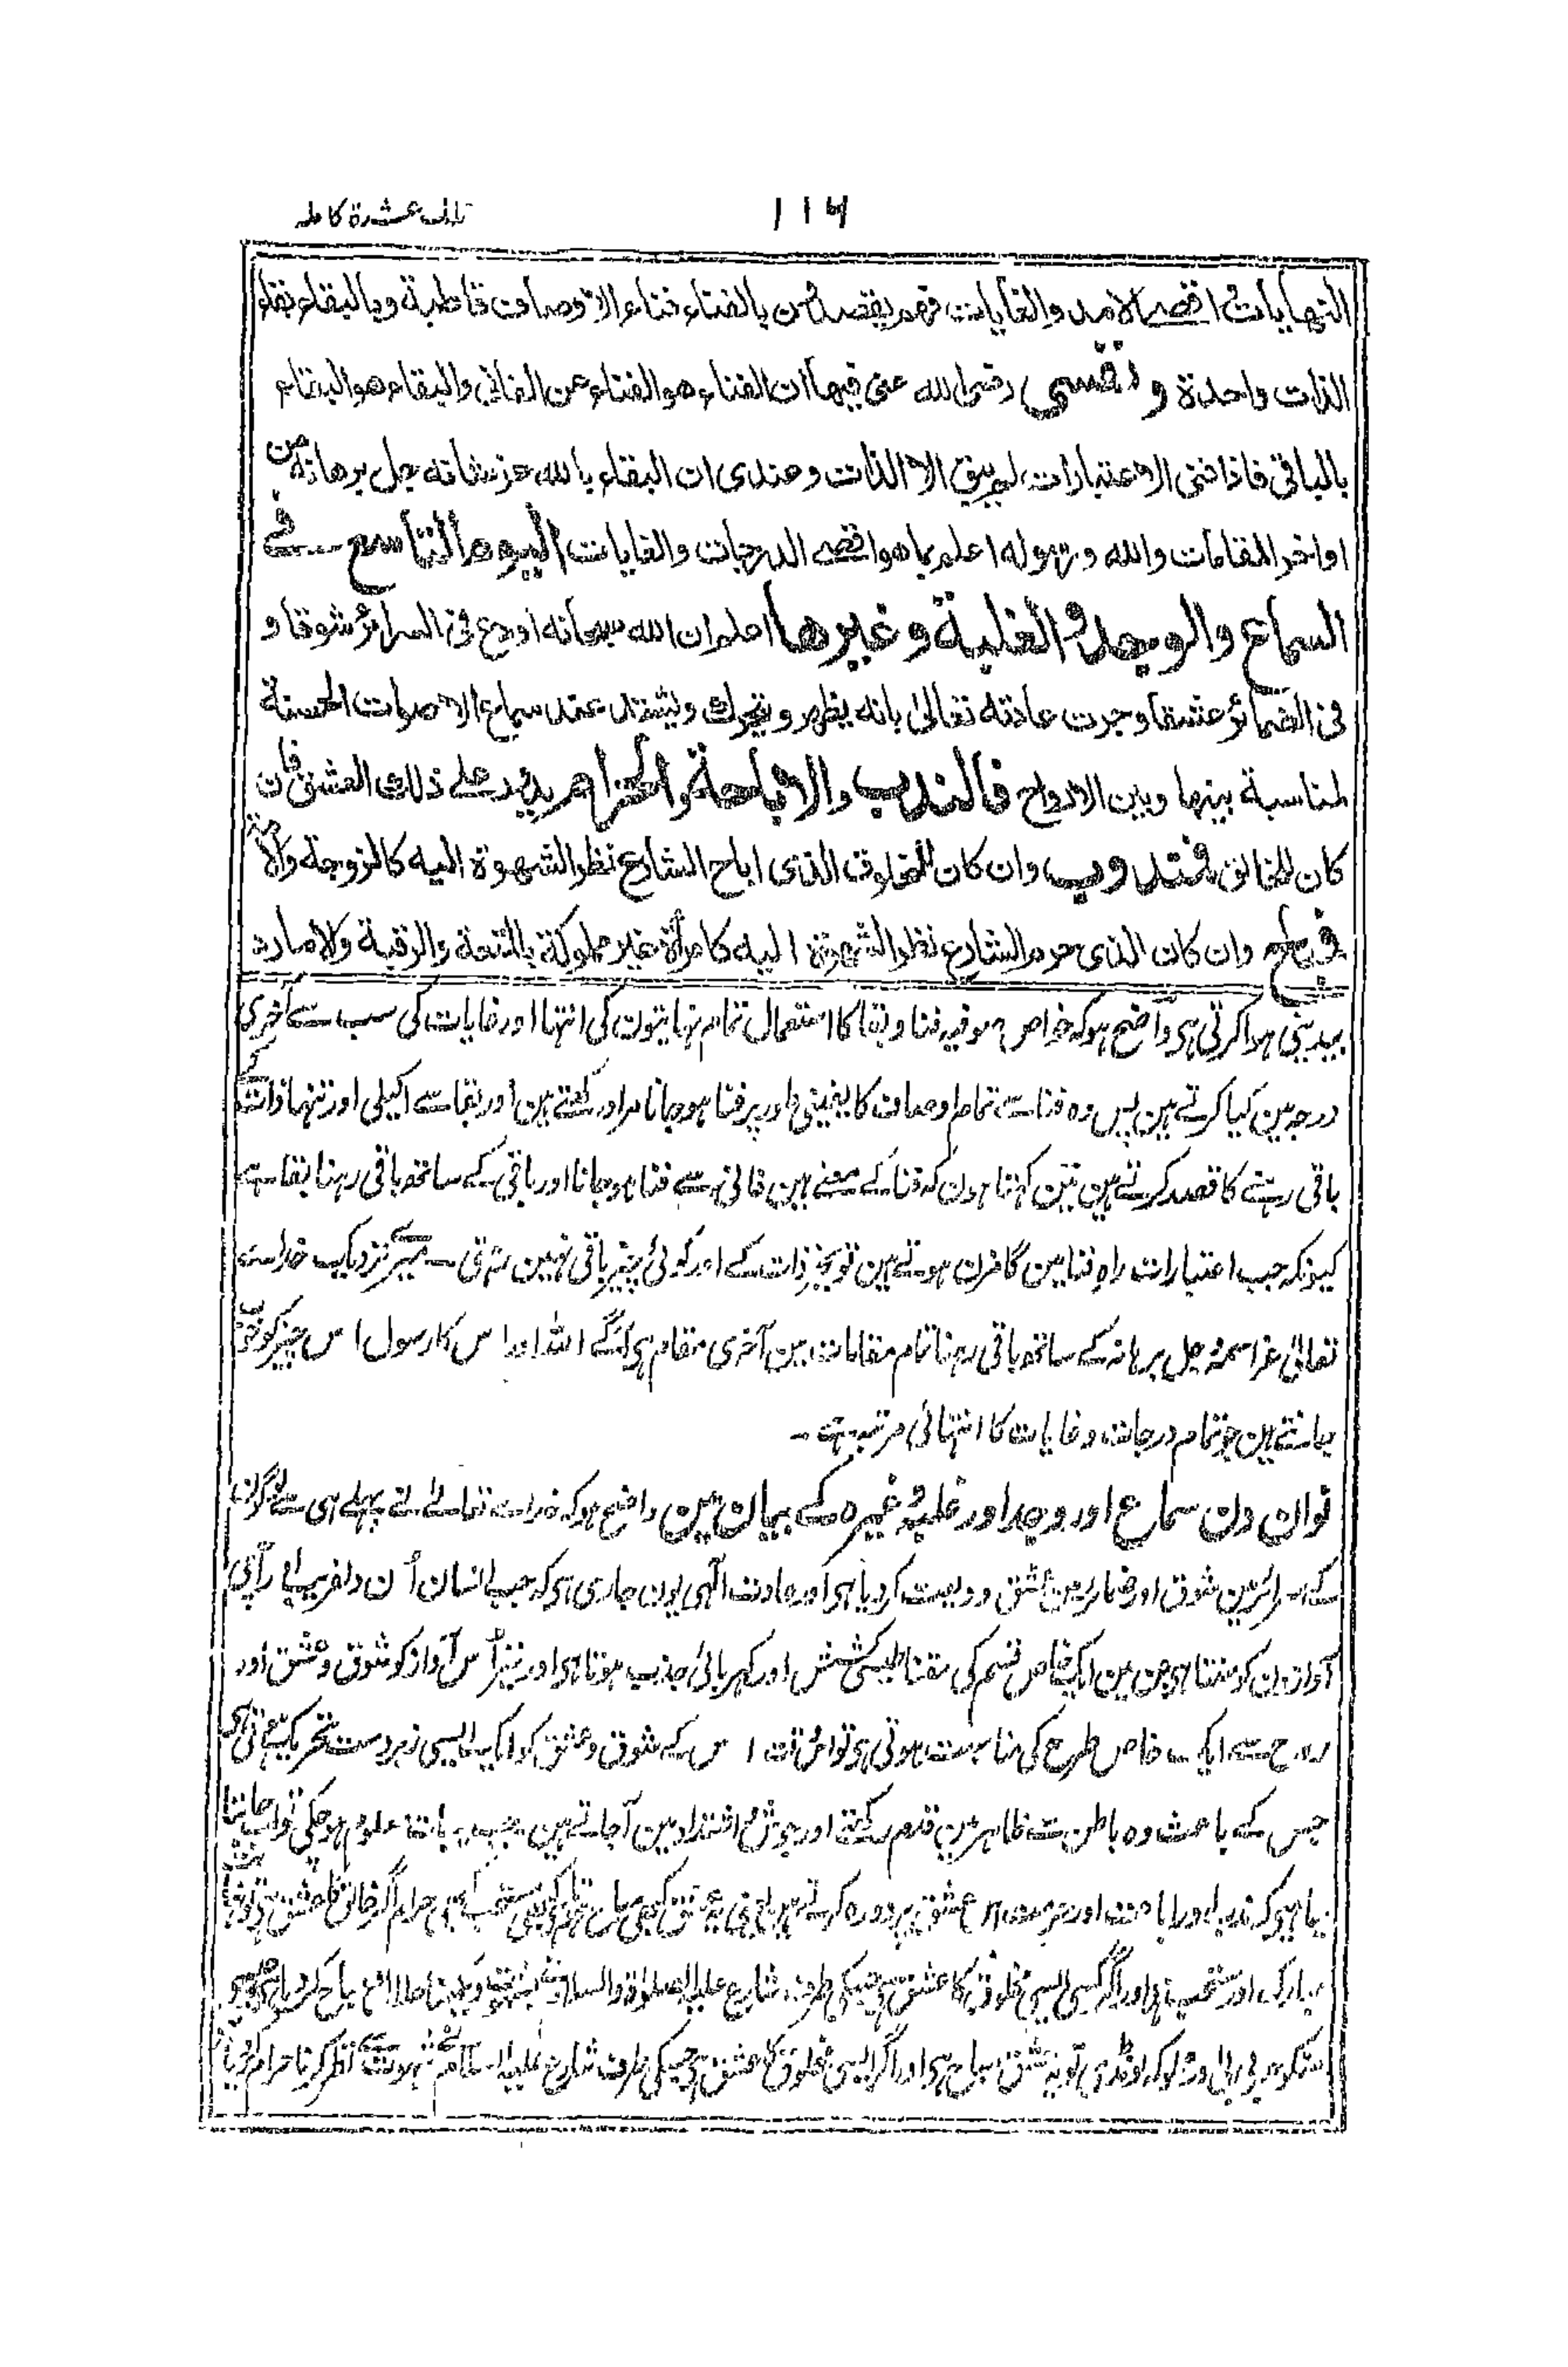 ۱۱۶
تلك عشرة كاملة
النهايات واقصى الامد والغايات فهم يقصدون بالفناء فناء الاوصاف قاطبة وبالبقاء بقاء
الذات واحدة ونفسى رضى الله عنى فيها ان الفناء هو الفناء عن الفانى والبقاء هو البقاء
بالباقى فاذا فنى الاعتبارات لم يبق الا الذات وعندى ان البقاء بالله عز شانه جل برهانه من
اواخر المقامات والله ورسوله اعلم بما هو اقصى الدرجات والغايات اليوم التاسع فى
السماع والوجد والغلبة وغيرها اعلم ان الله سبحانه اودع فى السرائر شوقا و
فى الضمائر عشقا وجرت عادته تعالى بانه يظهر ويتحرك ويشتد عند سماع الاصوات الحسنة
لمناسبة بينها وبين الارواح فالندب والاباحة والحرام يدور على ذلك العشق فان
كان للخالق فمندوب وان كان للمخلوق الذى اباح الشارع نظر الشهوة اليه كالزوجة والامة
فمباح وان كان الذى حرم الشارع نظر الشهوة اليه كامرأة غير مملوكة بالمتعة والرقبة والامارد
بدیہی ہوا کرتی ہی واضح ہو کہ خواص صوفیہ فنا و بقا کا استعمال تمام نہایتون کی انتہا اور غایات کی سب سے آخری
درجہ مین کیا کرتے ہین پس وہ فنا سے تمام اوصاف کا یقینی طور پر فنا ہو جانا مراد رکھتے ہین اور بقا سے اکیلی اور تنہا ذات کے
باقی رہنے کا قصد کرتے ہین مین کہتا ہون کہ فنا کے معنے ہین فانی سے فنا ہو جانا اور باقی کے ساتھ باقی رہنا بقا ہے
کیونکہ جب اعتبارات راہ فنا مین گامزن ہوتے ہین تو بجز ذات کے اور کوئی چیز باقی نہین رہتی ۔ میرے نزدیک خداے
تعالیٰ عز اسمہ جل برہانہ کے ساتھ باقی رہنا تمام مقامات مین آخری مقام ہی آگے اللہ اور اس کا رسول اس چیز کو خوب
جانتے ہین جو تمام درجات و غایات کا انتہائی مرتبہ ہے ۔
نوان دن سماع اور وجد اور غلبہ وغیرہ کے بیان مین واضح ہو کہ خداے تعالے نے پہلے ہی سے لوگون
کے سرائر مین شوق اور ضمائر مین عشق ودیعت کر دیا ہی اور عادت الٰہی یون جاری ہی کہ جب انسان اُن دلفریب
آوازون کو سنتا ہی جن مین ایک خاص قسم کی مقناطیسی کشش اور کہربائی جذب ہوتا ہی اور نیز اُس آواز کو شوق و عشق اور
روح سے ایک خاص طرح کی مناسبت ہوتی ہی تو اس کے شوق و عشق کو ایک ایسی زبردست تحریک ہوتی ہی
جس کے باعث وہ باطن سے ظاہر مین قدم رکھتے اور جوش و اشتداد مین آجاتے ہین جب یہ بات معلوم ہو چکی تو اب جاننا
چاہیے کہ ندب اور اباحت اور حرمت عشق پر دورہ کرتے ہین حرام اگر خالق کا عشق ہی تو
مبارک اور مستحب ہی اور اگر کسی ایسی مخلوق کا عشق ہی جسکی طرف شارع علیہ الصلوٰۃ والسلام نے
منکوحہ بی بی اور مملوکہ لونڈی تو یہ عشق مباح ہی اور اگر ایسی مخلوق کا عشق ہی جسکی طرف شارع علیہ السلام نے شہوت سے نظر کرنا حرام